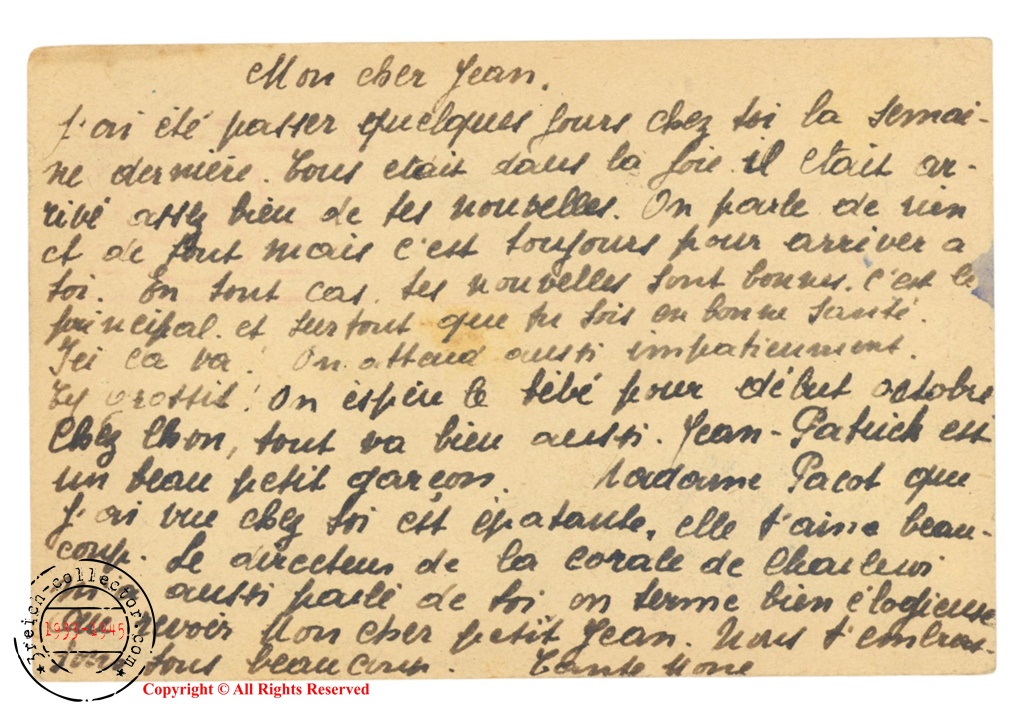 Mon cher Jean,
J'ai été passer quelques jours chez toi la semai-
ne dernière. Tous etait dans la joie il était ar-
rivé assez bien de tes nouvelles. On parle de rien
et de tout mais c'est toujours pour arriver a
toi. En tout cas, tes nouvelles sont bonnes. c'est le
principal. et surtout que tu sois en bonne santé.
Ici ca va! On attend aussi impatiemment.
grossit! On espère le bébé pour début octobre
Chez Chon, tout va bien aussi. Jean-Patrick est
un beau petit garçon. Madame Pacot que
J'ai vue chez toi est épatante, elle t'aime beau-
coup. Le directeur de la corale de Charleroi
aussi parlé de toi en terme bien élogieuse
revoir Mon cher petit Jean. Nous t'embras-
tous beaucoup. Tante Mone
3reich-collector.com
1933-1945
Copyright © All Rights Reserved